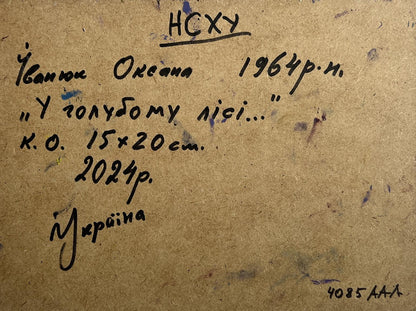 НСХУ
Іванюк Оксана 1964 р.н.
„У голубому лісі..."
к.о. 15x20 см.
2024р.
Україна
4085 ААЛ